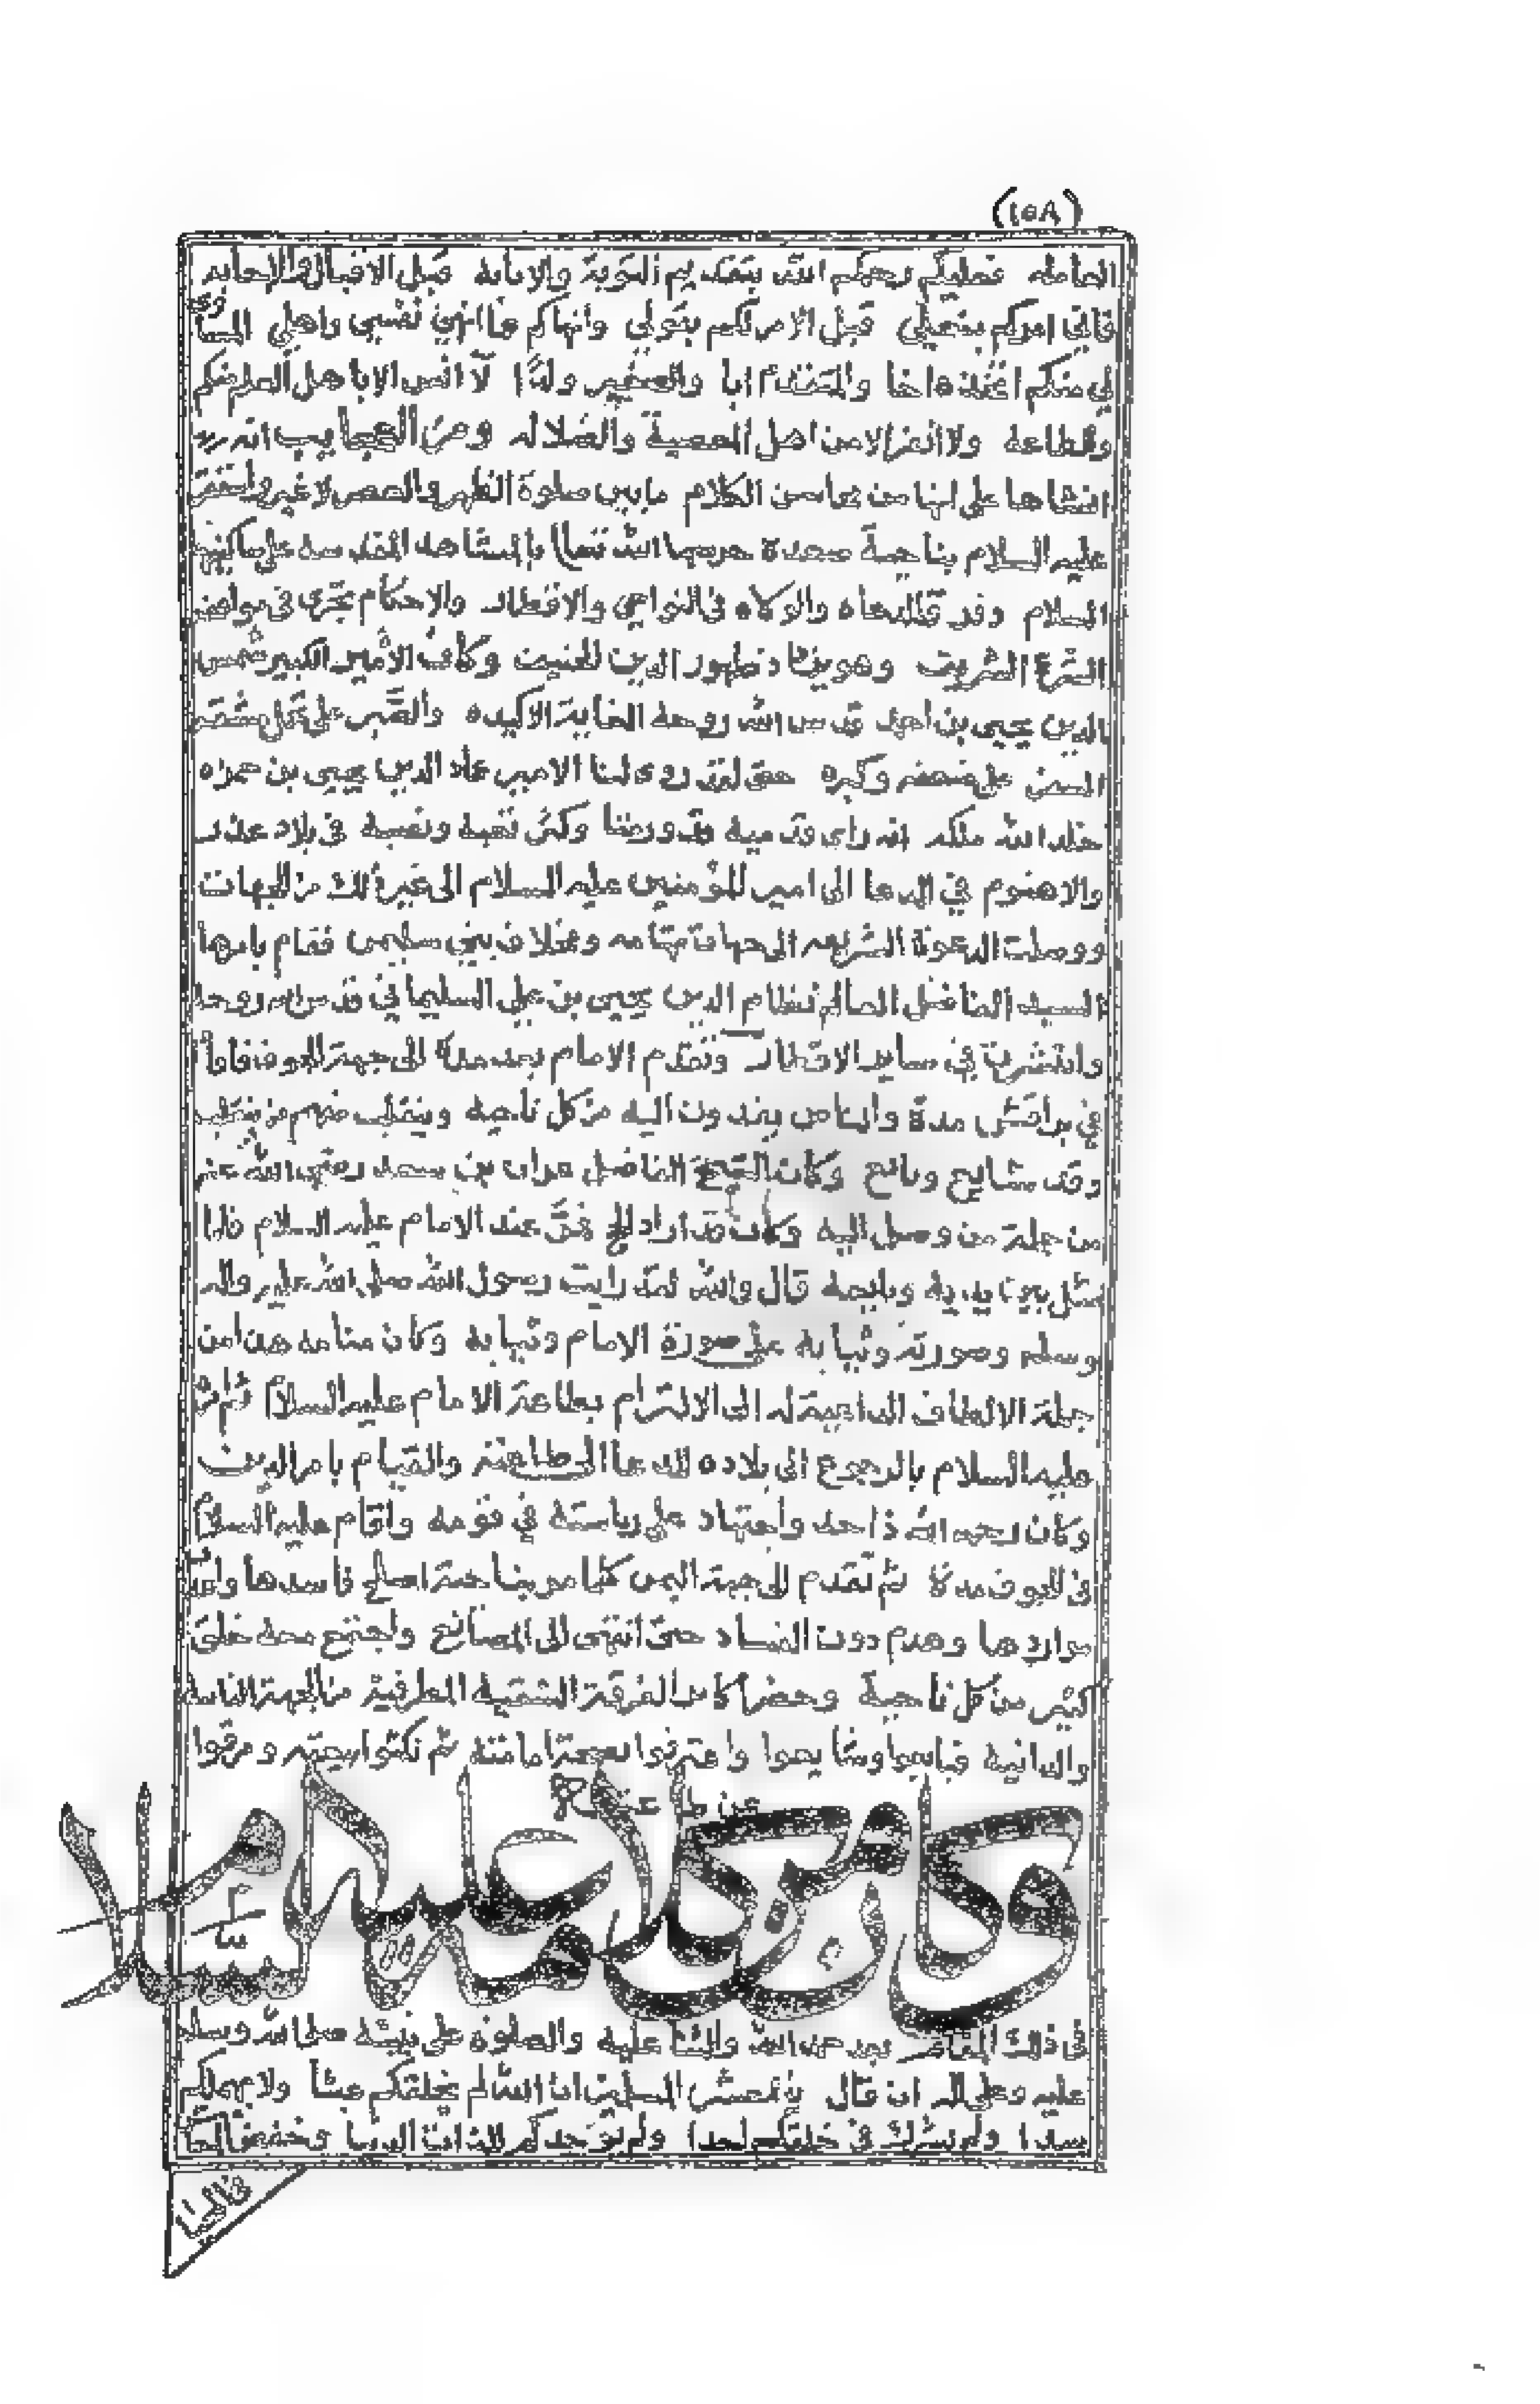 (١٥٨)
فعليكم رحكم الله بتقديم التوبة والانابة قبل الاقبال والاجابه
فاني امركم بنعلي قبل الامر لكم بقولي وانهاكم نفسي واهلي
لي منكم اتخذه اخا والمتقدم ابا والصغير ولدا لا انس الا باهل
والطاعة ولا انفر الا من اهل المعصية والضلاله ومن العجايب انه
انشاها على لها من محاسن الكلام مابين صلوة الظهر والعصر لا غير
عليه السلام بناحية صعدة حرسها الله تعالى بالمشاهد المقدسه على ساكنيها
السلام وفرق الدعاه والولاه في النواحي والاقطار والاحكام تجري في
الشرع الشريف وهو يزداد ظهور الدين الحنيف وكان الامير الكبير شمس
الدين يحيى بن احمد قدس الله روحه العناية الاكيده والصبر على
على ضعفه وكبره حتى لقد روى لنا الامير عماد الدين يحيى بن حمزه
خلد الله ملكه انه راى قدميه وقد ورمتا وكثر تعبه ونصبه في بلاد عذر
والاهنوم في الدعا الى امير المؤمنين عليه السلام الى غير ذلك من الجهات
ووصلت الدعوة الشريفه الى جهات تهامه ومخلاف بني سليمن فقام بامرها
السيد الفاضل العالم نظام الدين يحيى بن علي السليماني قدس الله روحه
وانتشرت في ساير الاقطار وتقدم الامام بعد مدة الى جهة الجوف فاقام
في براقش مدة والناس يفدون اليه من كل ناحية وينقلب منهم من ينقلب
وقد سايع وبايع وكان الشيخ الفاضل عزان بن سعد رضي الله عنه
من جملة من وصل اليه وكان قد اراد الحج عند الامام عليه السلام فلما
مثل بين يديه وبايعه قال والله لقد رايت رسول الله صلى الله عليه واله
وسلم وصورته وثيابه على صورة الامام وثيابه وكان منامه هذا من
جملة الالطاف الداعية له الى الالتزام بطاعة الامام عليه السلام ثم امره
عليه السلام بالرجوع الى بلاده للدعا الى طاعته والقيام بامر الدين
وكان رحمه الله ذا جد واجتهاد على رياسته في قومه واقام عليه السلام
في الجوف مدة ثم تقدم الى جهة اليمن كلما مر بناحية اصلح فاسدها
مواردها وهدم دور الفساد حتى انتهى الى المصانع واجتمع معه خلق
كثير من كل ناحية وحضر كافة الفرقة الشقية المطرفية من الجهة القاصية
والدانية فبايعوا وشايعوا واعترفوا بصحة امامته ثم نكثوا بيعته ومرقوا
وكان من كلامه عليه السلام
في ذلك المقام بعد حمد الله والثنا عليه والصلوة على نبيه صلى الله وسلم
عليه وعلى اله ان قال يا معشر المسلمين ان الله لم يخلقكم عبثا ولا
سدا ولم يشرك في خلقكم احدا ولم يوجدكم للذات الدنيا